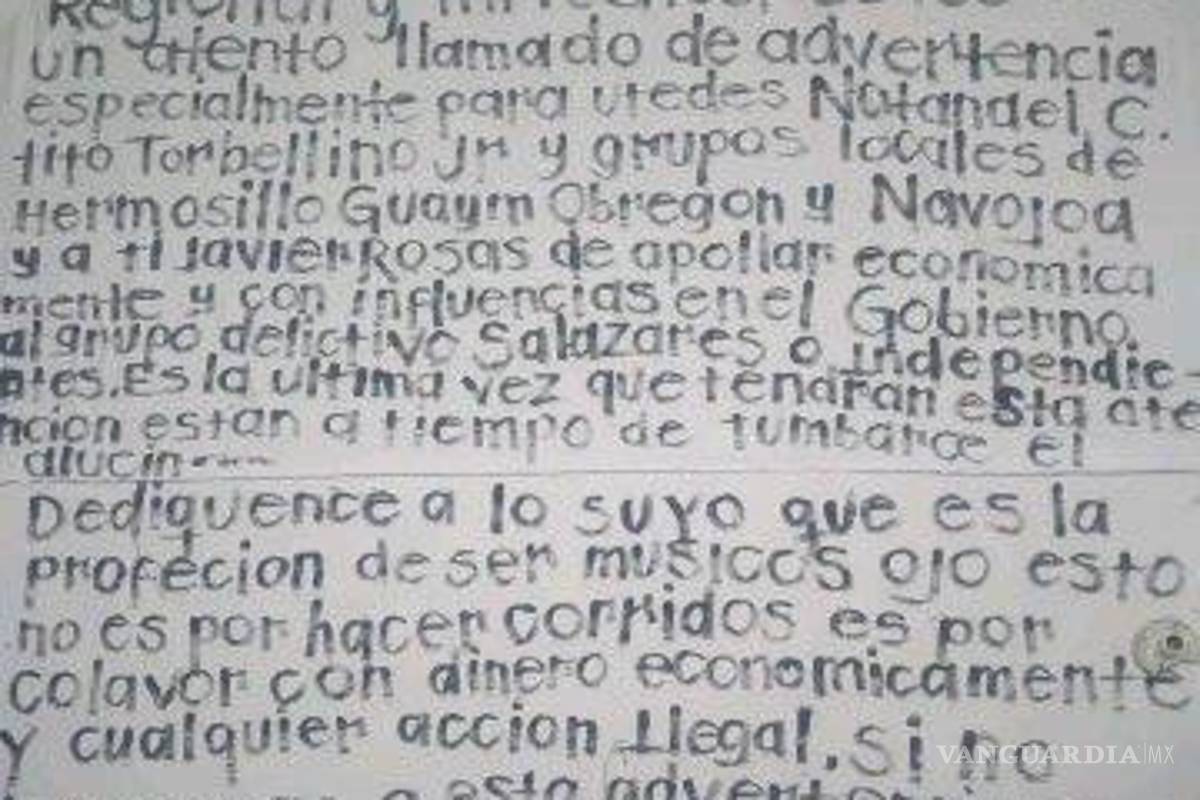 Regional y
un atento llamado de advertencia
especialmente para utedes Natanael C.
tito Torbellino Jr y grupos locales de
Hermosillo Guaym Obregon y Navojoa
y a ti Javier Rosas de apollar economica
mente y con influencias en el Gobierno.
al grupo delictivo Salazares o Independie-
ntes. Es la ultima vez que tendran esta ate
ncion estan a tiempo de tumbarce el
alucin----
Dediquence a lo suyo que es la
profecion de ser musicos ojo esto
no es por hacer corridos es por
colavor con dinero economicamente
y cualquier accion Ilegal. si no
a esta
VANGUARDIA|MX